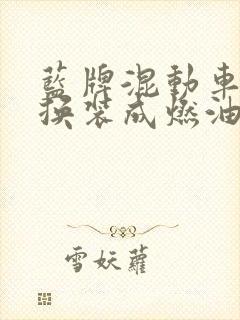 藍牌混動車
換裝成燃油
雪妖蘿